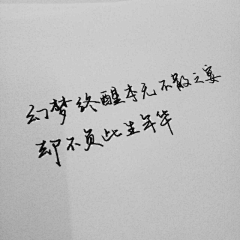 幻梦终醒本无不散之宴
却不负此生年华